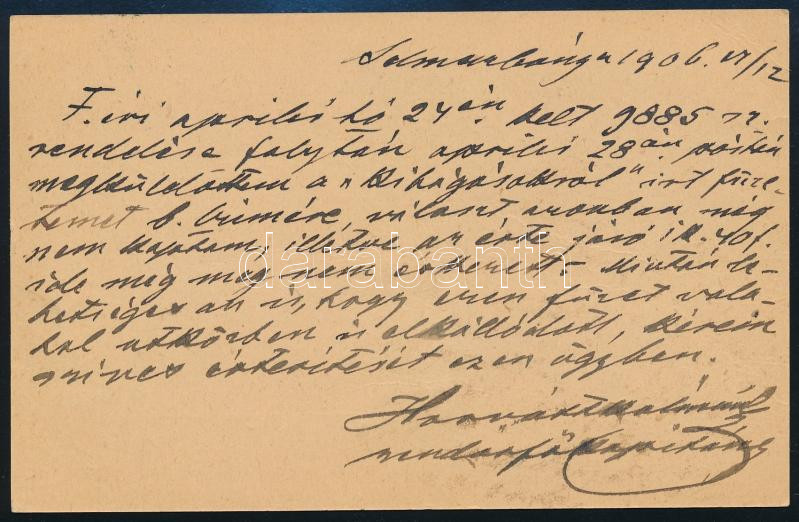 Selmeczbánya 1906. VI/12
F. évi április hó 24 én kelt 9885 sz.
rendelése folytán április 28 án postán
megküldöttem a "Kihágásokról" irt füze-
temet b. czimére, választ azonban még
nem kaptam, illetve az érte járó 1 K. 40 f.
ide még meg nem érkezett. Miután le-
hetséges az is, hogy ezen füzet vala-
hol útközben is elkallódott, kérem
szives értesitését ezen ügyben.
Horváth Kálmán
rendőrfőkapitány
darabanth